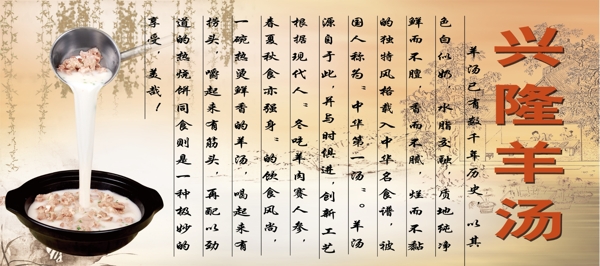 兴隆羊汤
羊汤已有数千年历史，以其
色白似奶，水脂交融，质地纯净
鲜而不膻，香而不腻，烂而不黏
的独特风格载入中华名食谱，被
国人称为“中华第一汤”。羊汤
源自于此，并与时俱进，创新工艺
根据现代人“冬吃羊肉赛人参，
春夏秋食亦强身”的饮食风尚，
一碗热烫鲜香的羊汤，喝起来有
捞头，嚼起来有筋头，再配以劲
道的热烧饼同食则是一种极妙的
享受，美哉！